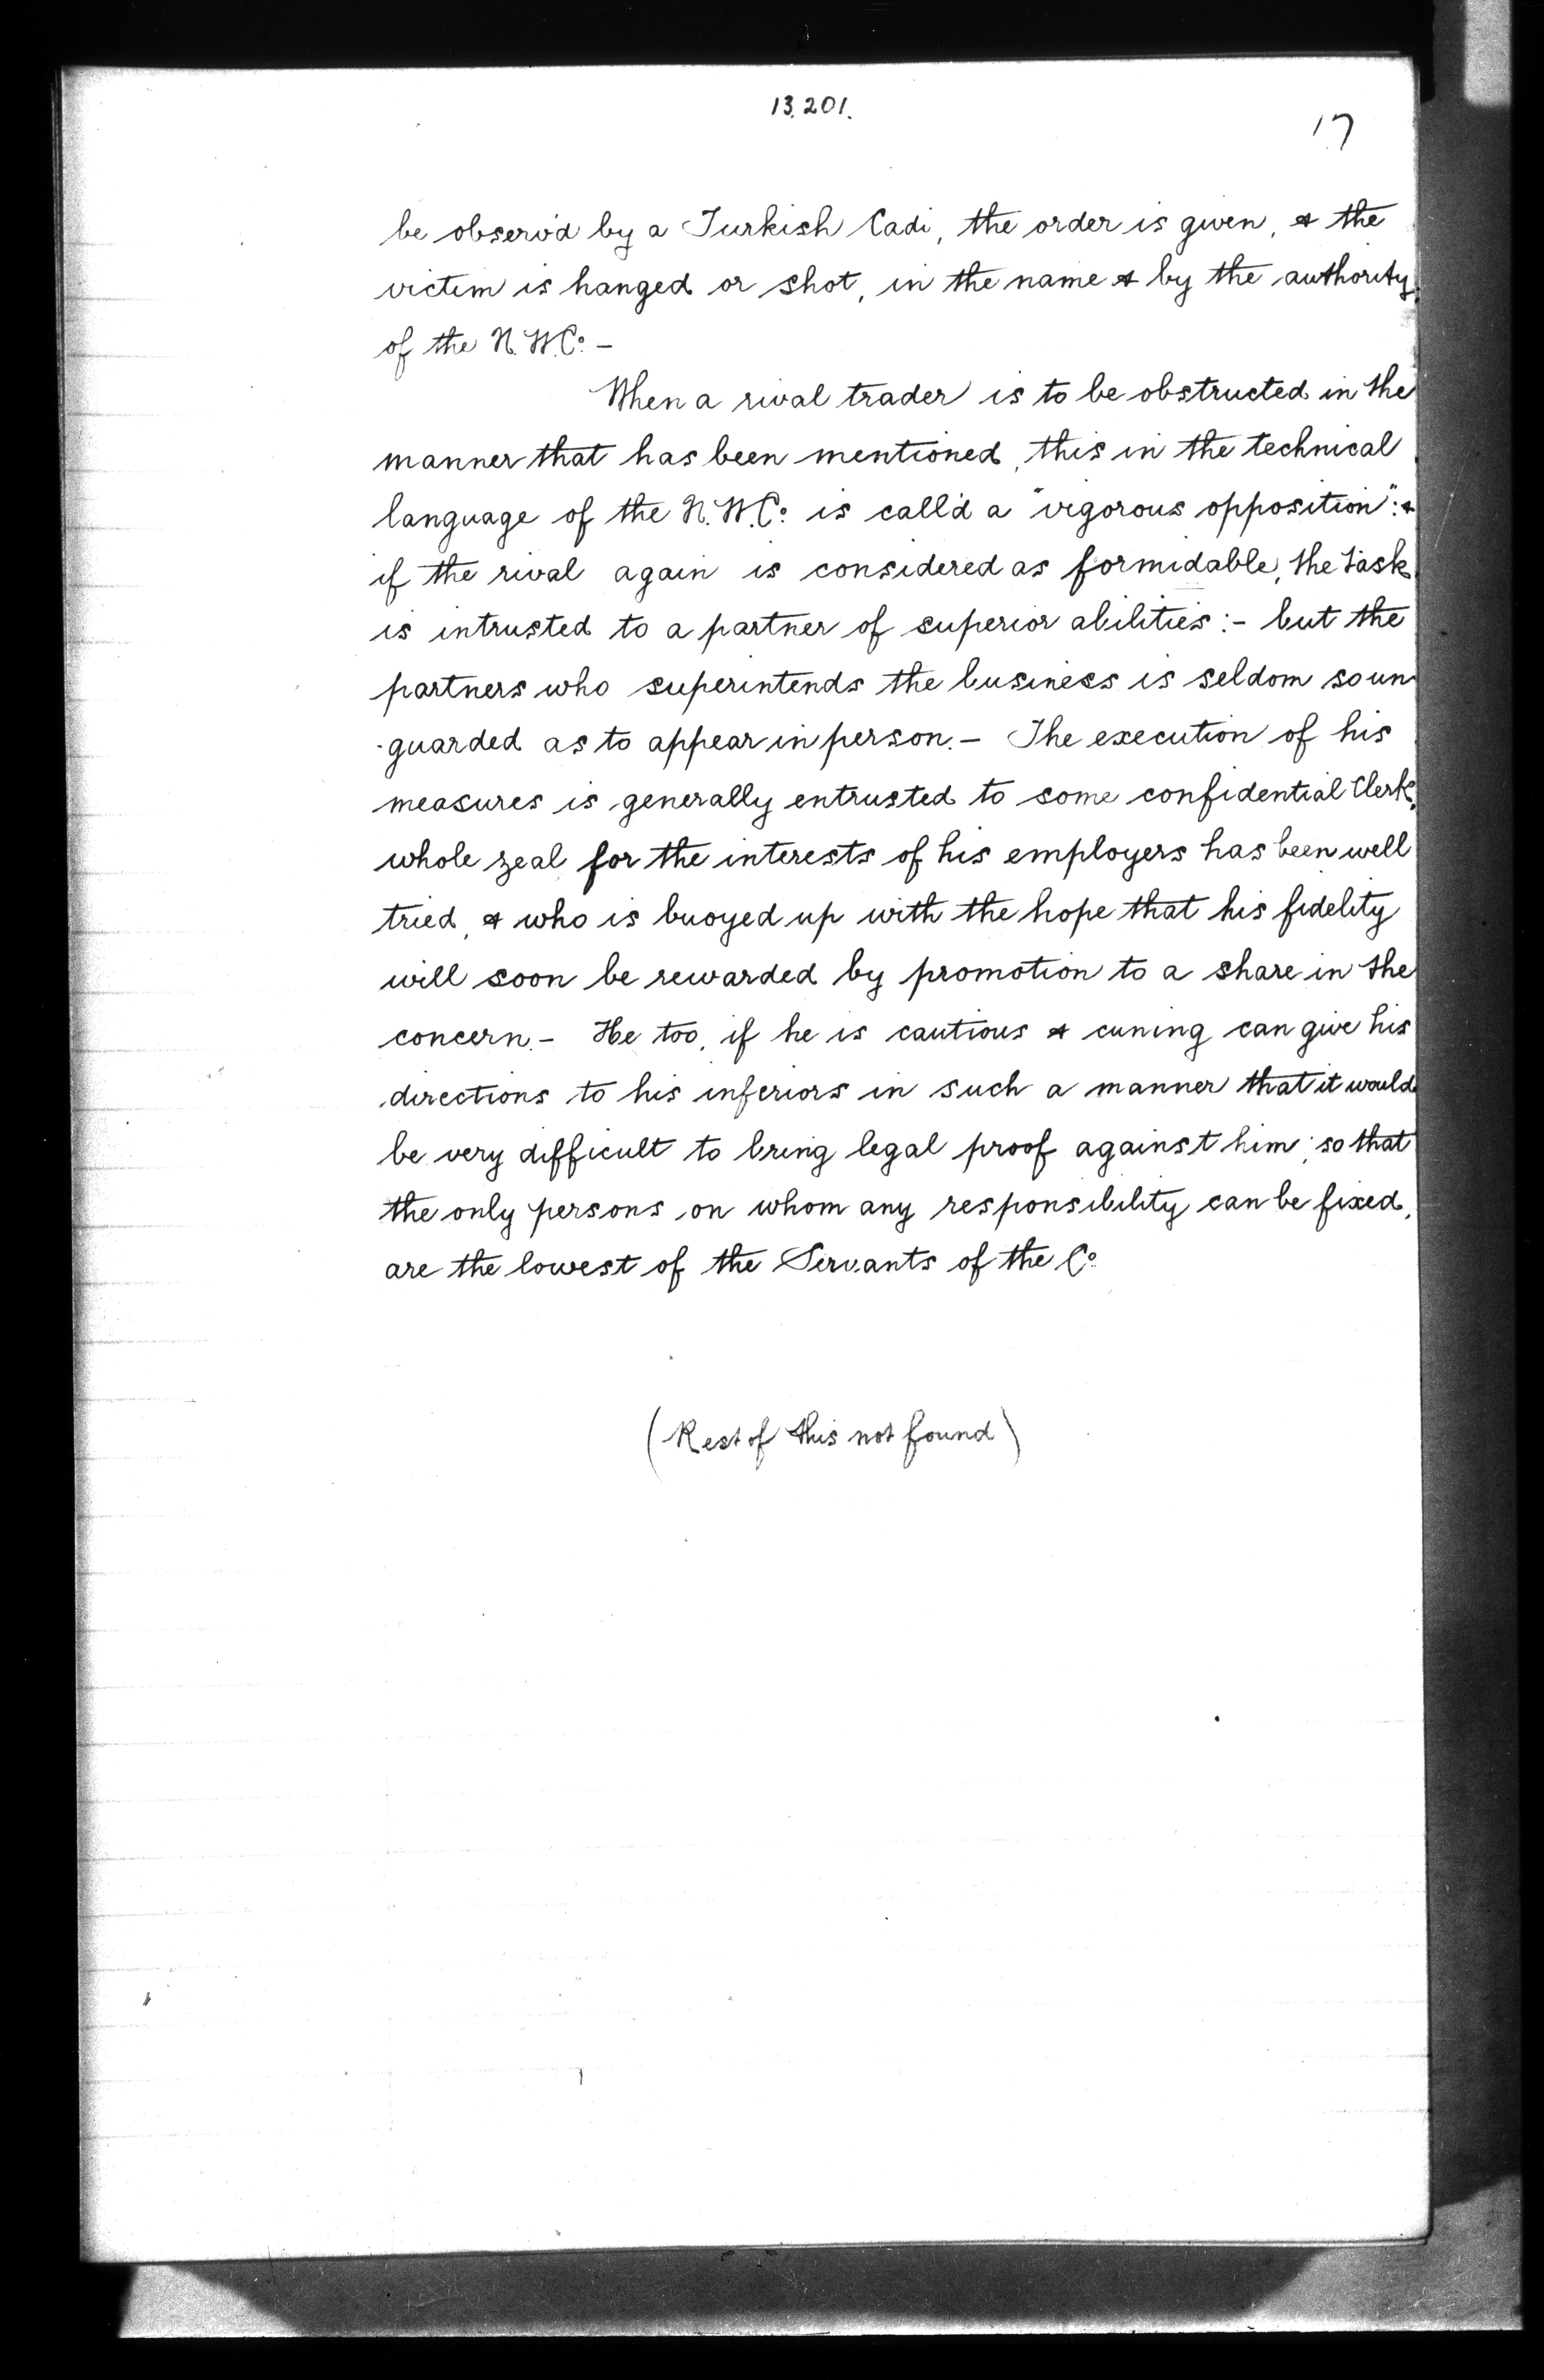 13.201.
17
be observ'd by a Turkish Cadi, the order is given, & the
victim is hanged or shot, in the name & by the authority
of the N.W.Co. –
When a rival trader is to be obstructed in the
manner that has been mentioned, this in the technical
language of the N.W.Co. is call'd a "vigorous opposition": &
if the rival again is considered as formidable, the task
is intrusted to a partner of superior abilities :- but the
partners who superintends the business is seldom so un
-guarded as to appear in person. – The execution of his
measures is generally entrusted to some confidential Clerk,
whole zeal for the interests of his employers has been well
tried, & who is buoyed up with the hope that his fidelity
will soon be rewarded by promotion to a share in the
concern. – He too, if he is cautious & cuning can give his
directions to his inferiors in such a manner that it would
be very difficult to bring legal proof against him; so that
the only persons on whom any responsibility can be fixed,
are the lowest of the Servants of the Co.
(Rest of this not found)